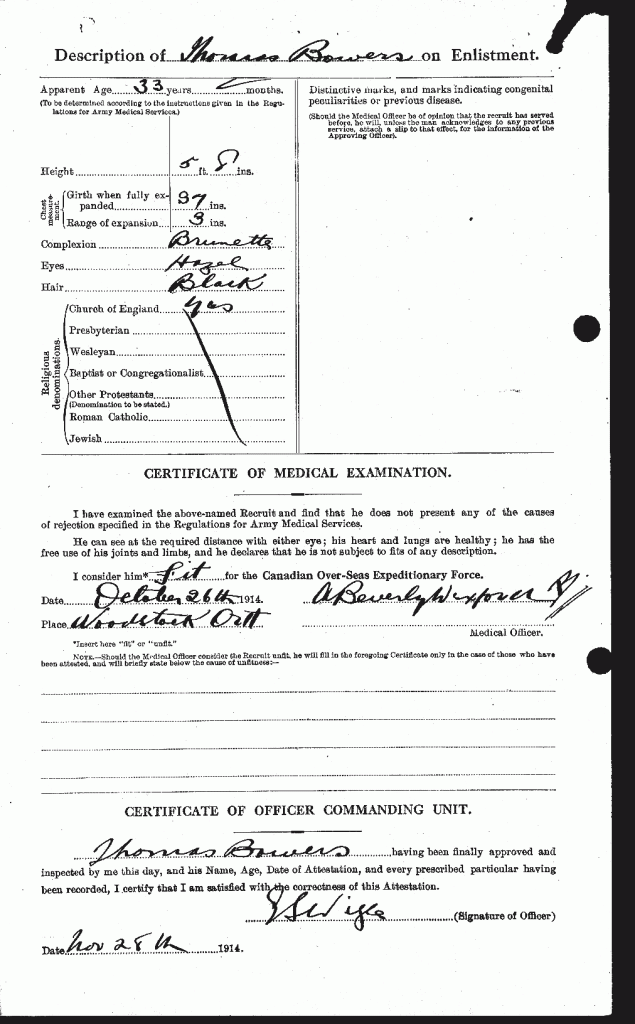 Description of Thomas Bowers on Enlistment.
Apparent Age 33 years months.
(To be determined according to the instructions given in the Regu-
lations for Army Medical Services.)
Height 5 ft. 8 ins.
Chest
measure-
ment.
Girth when fully ex-
panded 37 ins.
Range of expansion 3 ins.
Complexion Brunette
Eyes Hazel
Hair Black
Religious
denominations.
Church of England yes
Presbyterian
Wesleyan
Baptist or Congregationalist
Other Protestants
(Denomination to be stated.)
Roman Catholic
Jewish
Distinctive marks, and marks indicating congenital
peculiarities or previous disease.
(Should the Medical Officer be of opinion that the recruit has served
before, he will, unless the man acknowledges to any previous
service, attach a slip to that effect, for the information of the
Approving Officer).
CERTIFICATE OF MEDICAL EXAMINATION.
I have examined the above-named Recruit and find that he does not present any of the causes
of rejection specified in the Regulations for Army Medical Services.
He can see at the required distance with either eye; his heart and lungs are healthy; he has the
free use of his joints and limbs, and he declares that he is not subject to fits of any description.
I consider him* fit for the Canadian Over-Seas Expeditionary Force.
Date October 26th 1914.
A Beverly
Place Woodstock Ont
Medical Officer.
*Insert here "fit" or "unfit."
NOTE.—Should the Medical Officer consider the Recruit unfit, he will fill in the foregoing Certificate only in the case of those who have
been attested, and will briefly state below the cause of unfitness:—
CERTIFICATE OF OFFICER COMMANDING UNIT.
Thomas Bowers having been finally approved and
inspected by me this day, and his Name, Age, Date of Attestation, and every prescribed particular having
been recorded, I certify that I am satisfied with the correctness of this Attestation.
Wigle (Signature of Officer)
Date Nov 28th 1914.